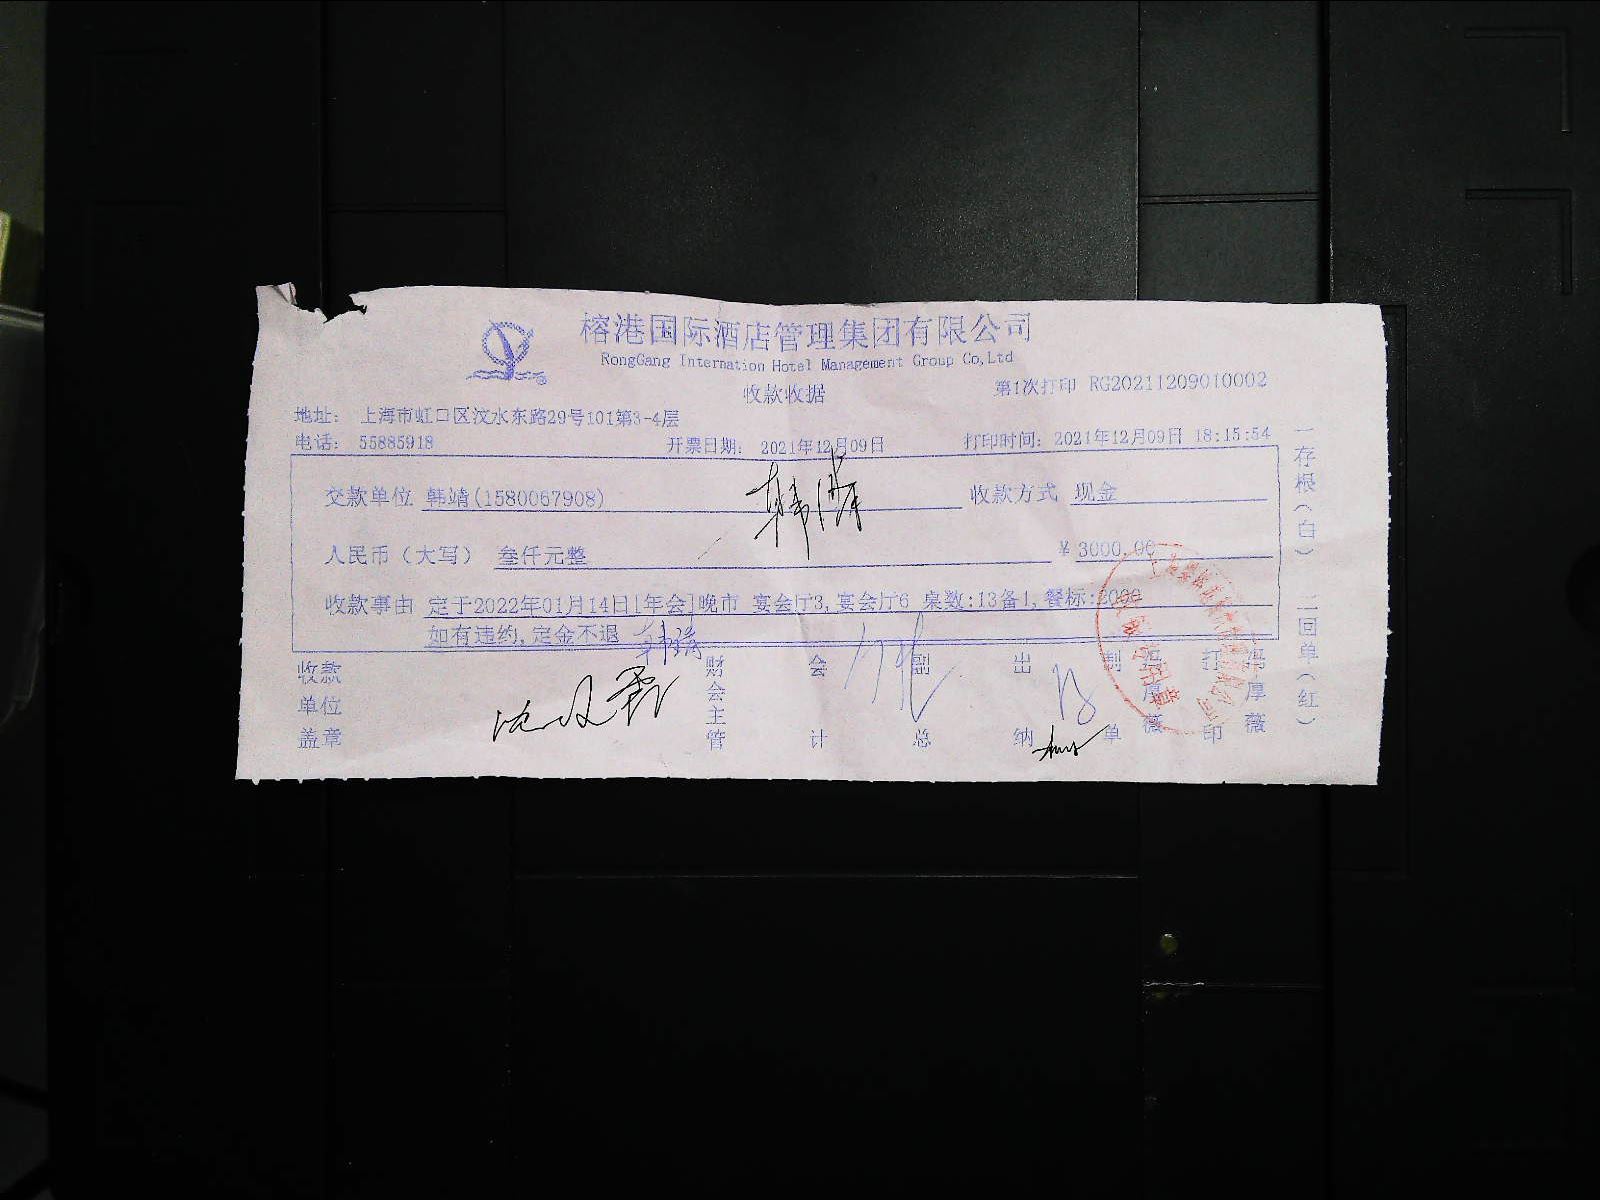 榕港国际酒店管理集团有限公司
RongGang Internation Hotel Management Group Co,Ltd
收款收据
第1次打印 RG20211209010002
地址: 上海市虹口区汶水东路29号101第3-4层
电话: 55885918 开票日期: 2021年12月09日 打印时间: 2021年12月09日 18:15:54
交款单位 韩靖(1580067908) 收款方式 现金
人民币（大写） 叁仟元整 ¥ 3000.00
收款事由 定于2022年01月14日[年会]晚市 宴会厅3,宴会厅6 桌数:13备1,餐标:2000
如有违约,定金不退 韩靖
收款单位盖章
财会主管
会计
副总
出纳
制单
打印
厚薇
一存根（白）
二回单（红）